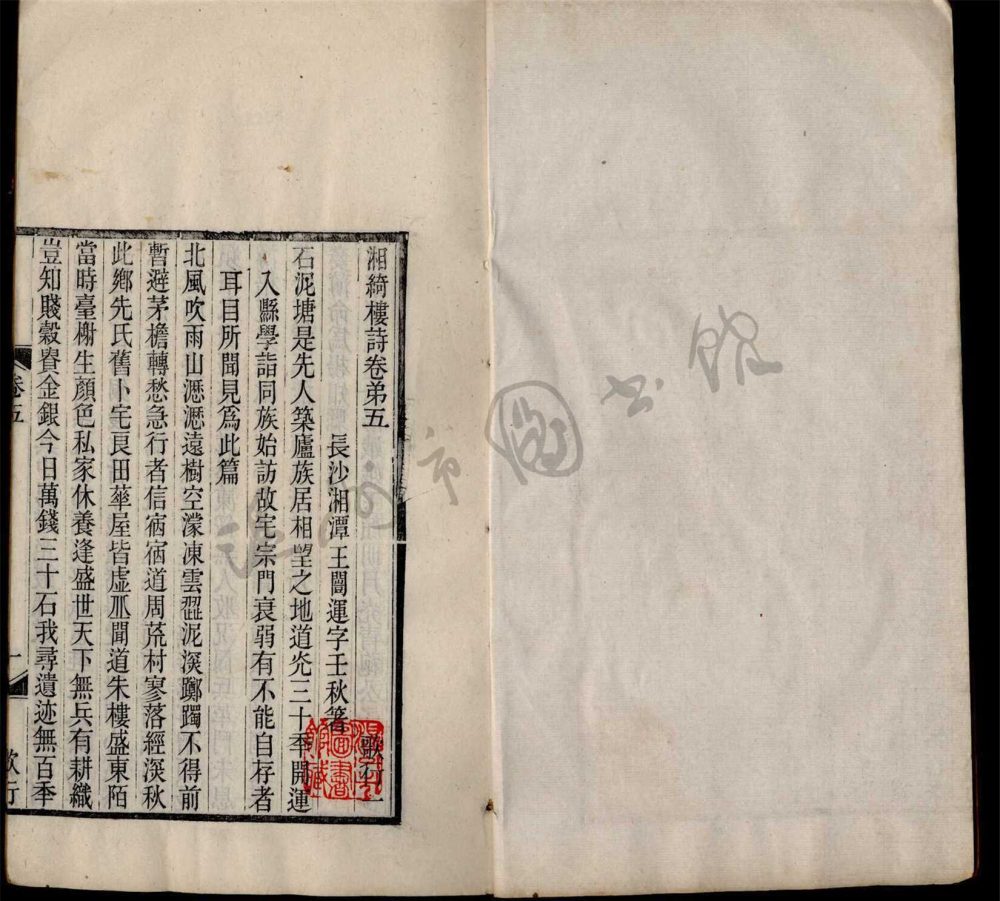 湘綺樓詩卷弟五　歌行一
長沙湘潭王闓運字壬秋箸
石泥塘是先人築廬族居相望之地道光三十秊開運
入縣學詣同族始訪故宅宗門衰弱有不能自存者
耳目所聞見爲此篇
北風吹雨山瀝瀝遠樹空濛凍雲澀泥深躑躅不得前
暫避茅檐轉愁急行者信宿宿道周荒村寥落經深秋
此鄉先氏舊卜宅良田華屋皆虛丘聞道朱樓盛東陌
當時臺榭生顏色私家休養逢盛世天下無兵有耕織
豈知賤穀貴金銀今日萬錢三十石我尋遺迹無百秊
卷五
一
歌行
市圖書館
圖書館藏